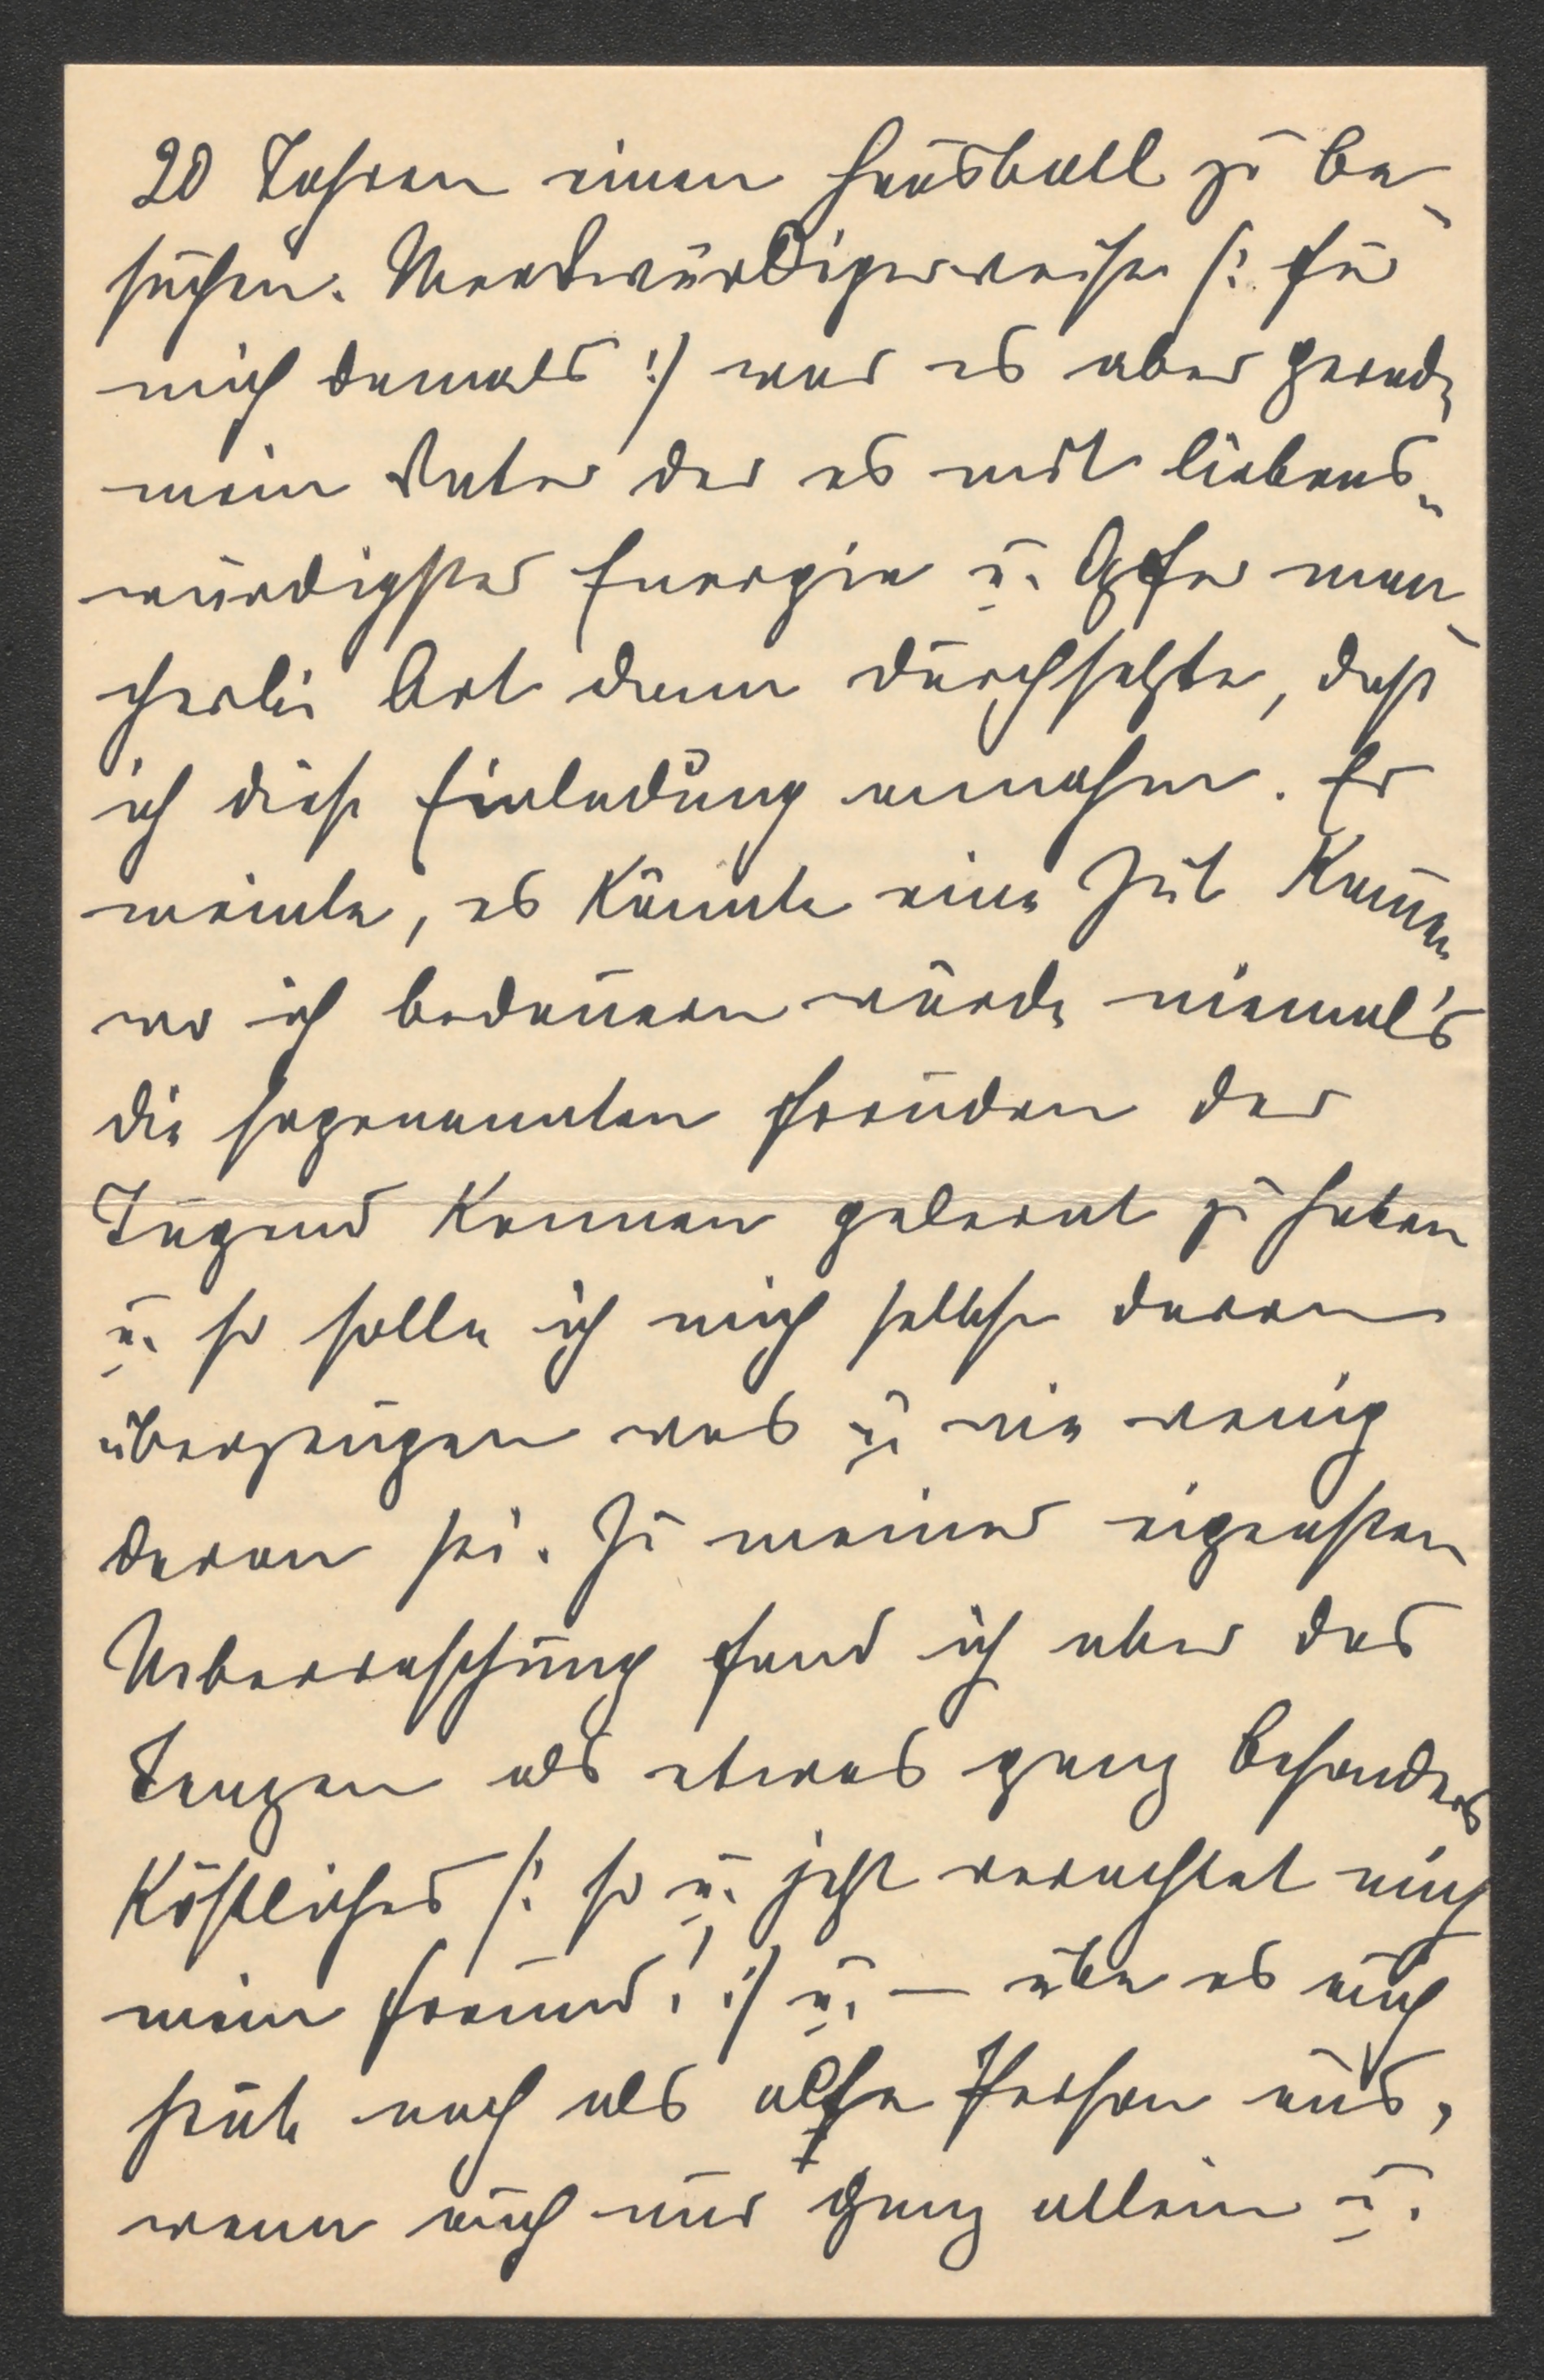 20 Jahren einen Hausball zu be-
suchen. Merkwürdigerweise /: für
mich damals :/ war es aber gerade
mein Vater der es mit liebens-
würdigster Energie u. Opfer man-
cherlei Art dann durchsetzte, daß
ich diese Einladung annahm. Er
meinte, es könnte eine Zeit kommen
wo ich bedauern würde niemals
die sogenannten Freuden der
Jugend kennen gelernt zu haben
u. so solle ich mich selbst davon
überzeugen was u. wie wenig
daran sei. Zu meiner eigensten
Ueberraschung fand ich aber das
Tanzen als etwas ganz besonders
Köstliches /: so u. jetzt verachtet mich
mein Freund! :/ u. — übe es auch
heute noch als alte Person aus,
wenn auch nur ganz allein u.